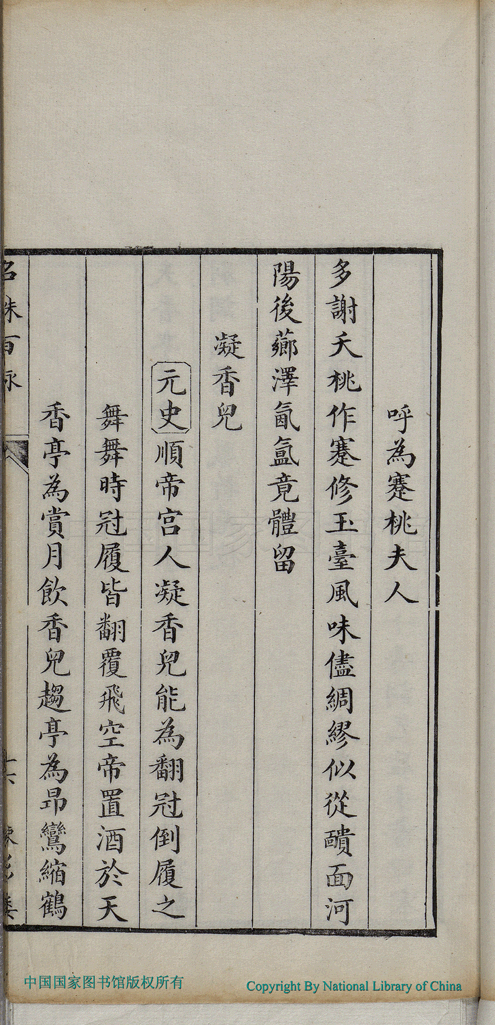 呼為蹇桃夫人
多謝夭桃作蹇修玉臺風味儘綢繆似從靧面河
陽後薌澤氤氳竟體留
凝香兒
元史順帝宮人凝香兒能為翻冠倒履之
舞舞時冠履皆翻覆飛空帝置酒於天
香亭為賞月飲香兒趨亭為昂鸞縮鶴
名姝百詠
中国国家图书馆版权所有
Copyright By National Library of China